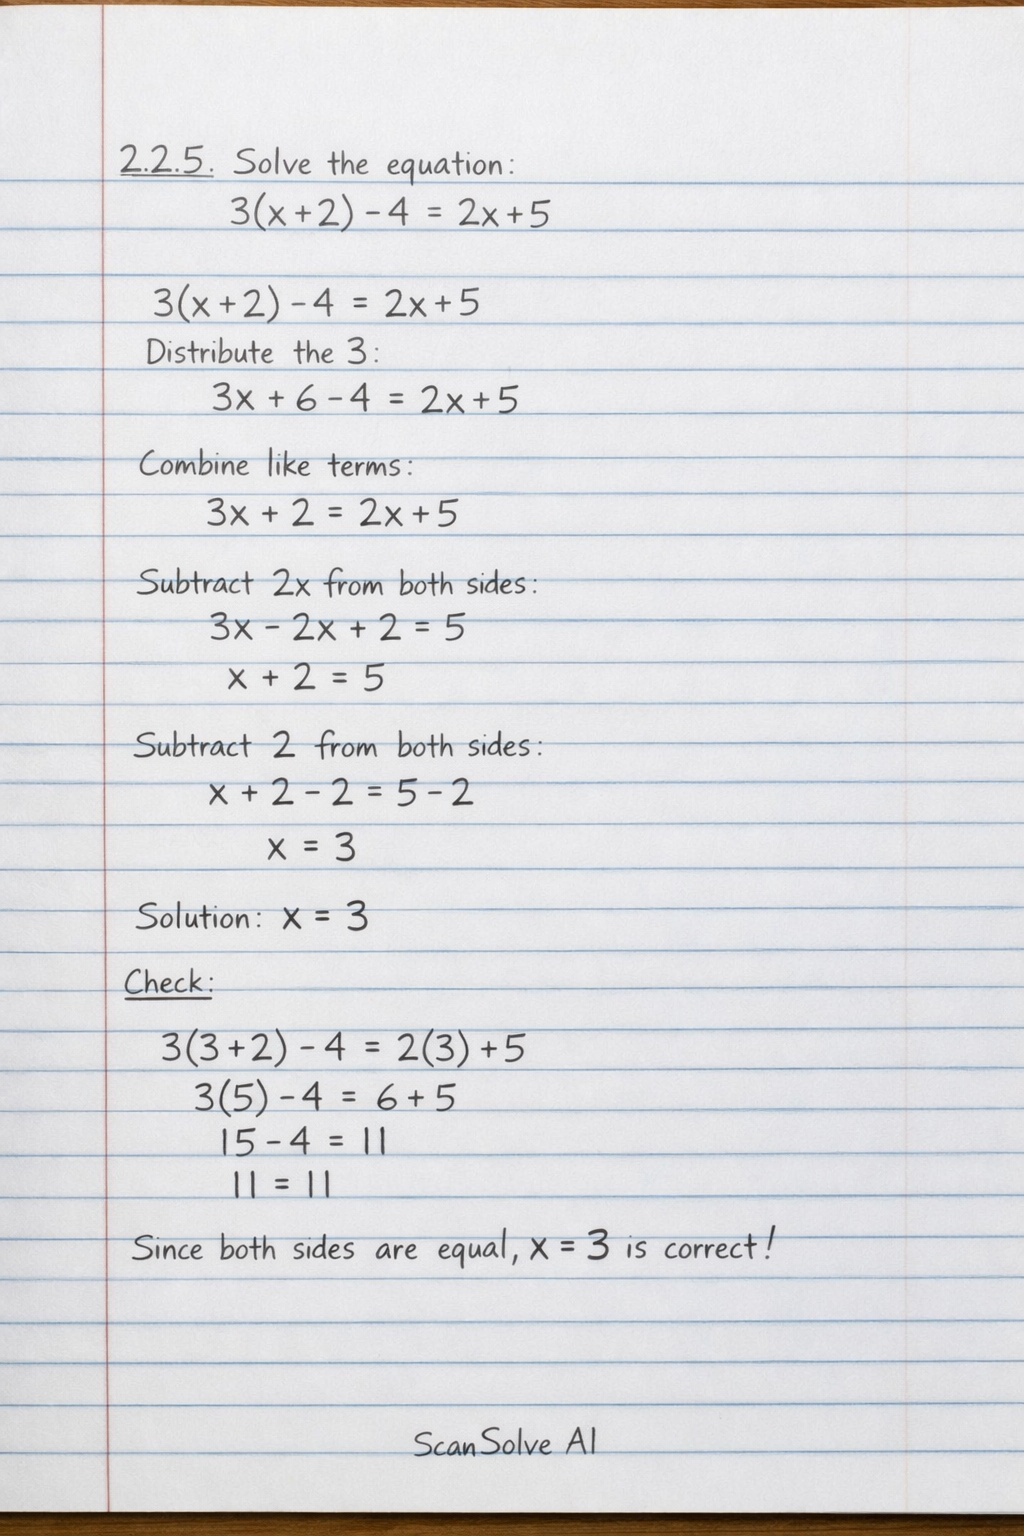 2.2.5. Solve the equation:
3(x+2) - 4 = 2x+5
3(x+2) - 4 = 2x+5
Distribute the 3:
3x + 6 - 4 = 2x+5
Combine like terms:
3x + 2 = 2x+5
Subtract 2x from both sides:
3x - 2x + 2 = 5
x + 2 = 5
Subtract 2 from both sides:
x + 2 - 2 = 5 - 2
x = 3
Solution: x = 3
Check:
3(3+2) - 4 = 2(3) +5
3(5) - 4 = 6 + 5
15 - 4 = 11
11 = 11
Since both sides are equal, x = 3 is correct!
ScanSolve AI